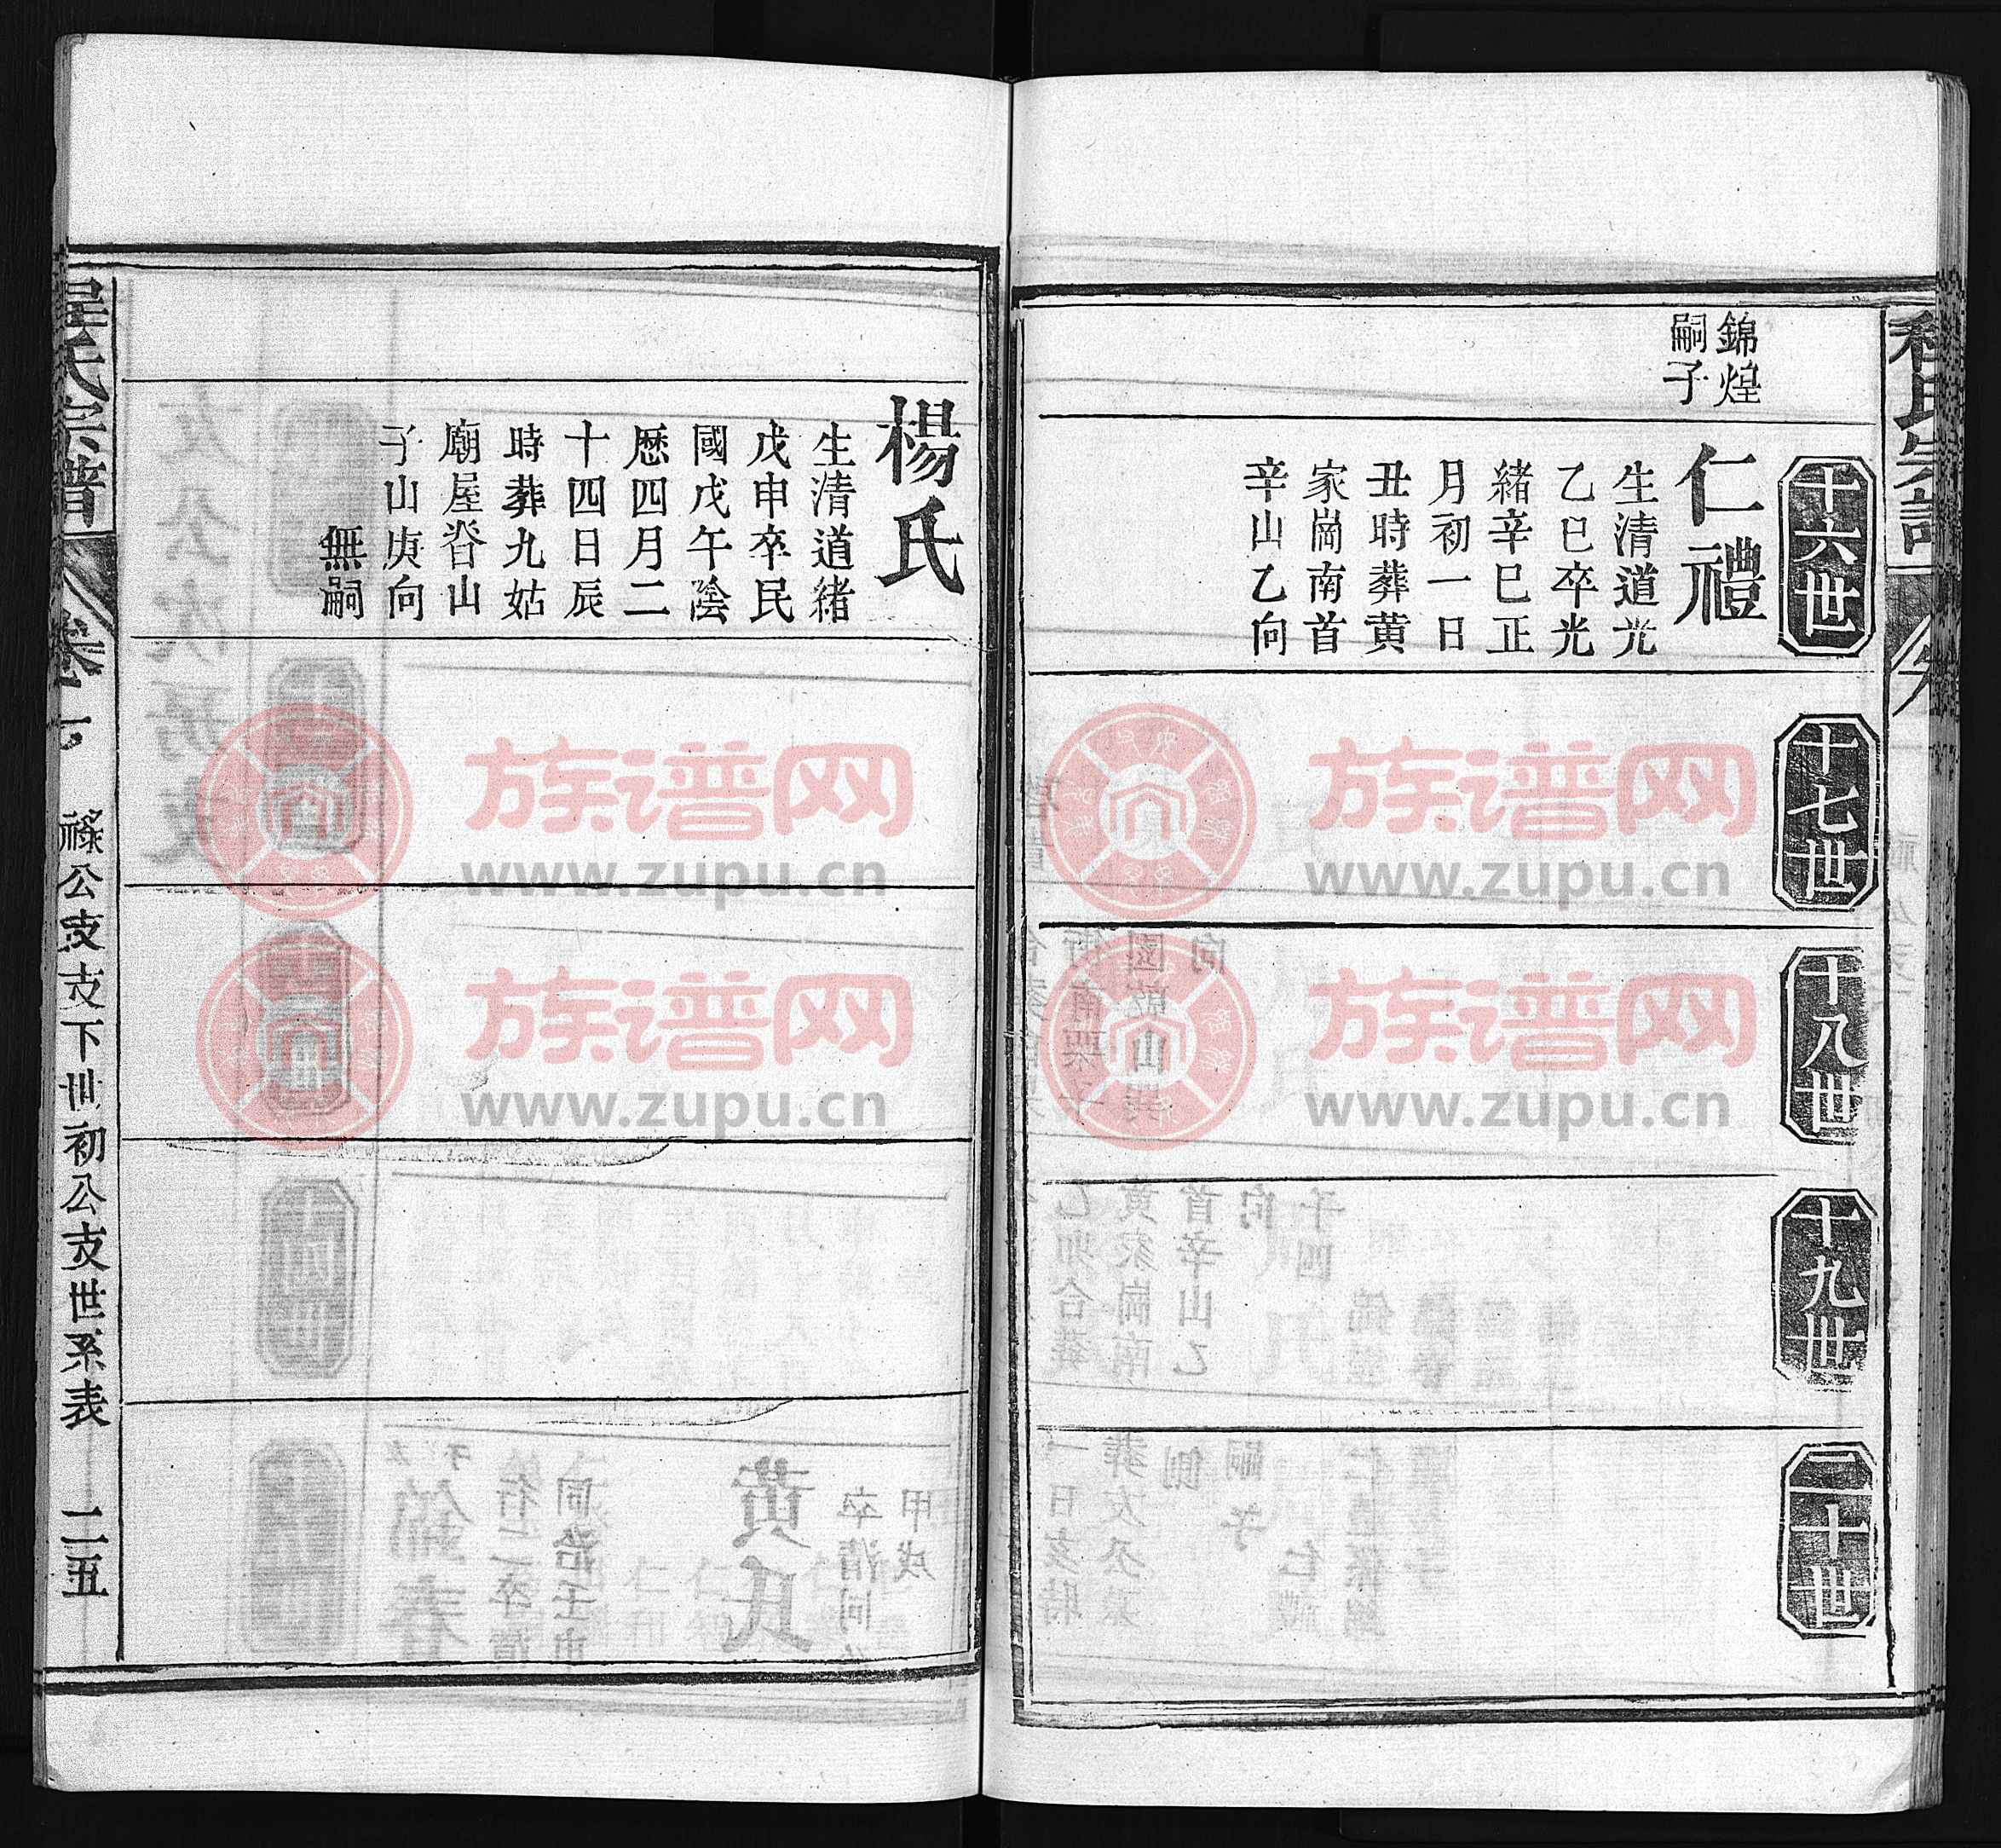 十六世
十七世
十八世
十九世
二十世
錦煌
嗣子
仁禮
生清道光
乙巳卒光
緒辛巳正
月初一日
丑時葬黄
家崗南首
辛山乙向
楊氏
生清道緒
戊申卒民
國戊午陰
歷四月二
十四日辰
時葬九姑
廟屋脊山
子山庚向
無嗣
氏宗譜
祿公支支下世初公支世系表
二五
族谱网
www.zupu.cn
族谱网
www.zupu.cn
族谱网
www.zupu.cn
族谱网
www.zupu.cn